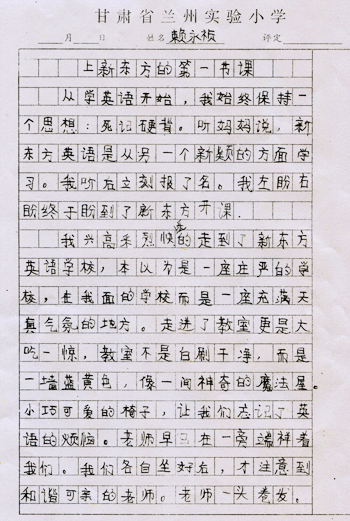 甘肃省兰州实验小学
月 日 姓名 赖永祯 评定
上新东方的第一节课
从学英语开始，我始终保持一
个思想：死记硬背。听妈妈说，新
东方英语是从另一个新颖的方面学
习。我听后立刻报了名。我左盼右
盼终于盼到了新东方开课.
我兴高采烈的走到了新东方
英语学校，本以为是一座庄严的学
校，在我面的学校而是一座充满天
真气氛的地方。走进了教室更是大
吃一惊，教室不是白刷干净，而是
一墙蓝黄色，像一间神奇的魔法屋。
小巧可爱的椅子，让我们忘记了英
语的烦恼。老师早已在一旁端祥着
我们。我们各自坐好后，才注意到
和谐可亲的老师。老师一头卷发。